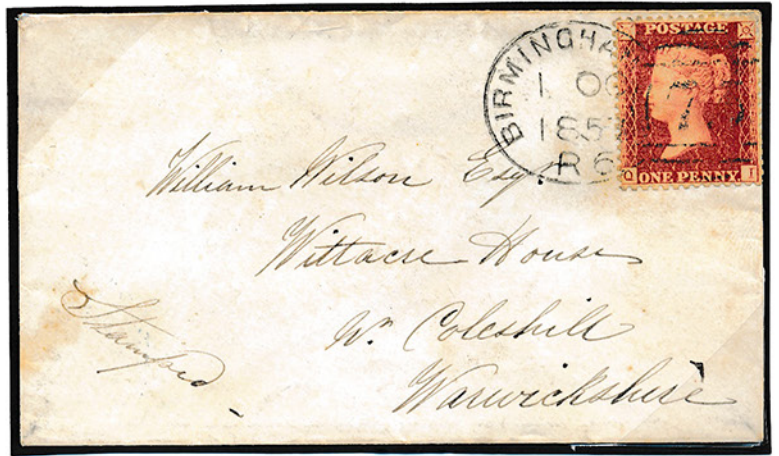 POSTAGE
BIRMINGHA
1 OC
185
R6
Q I
ONE PENNY
William Wilson Esqr.
Wittacre House
Nr. Coleshill
Warwickshire
Stamped